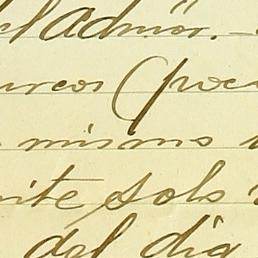 del Admör.
urcos (pec
mismo
ite solo
del dia